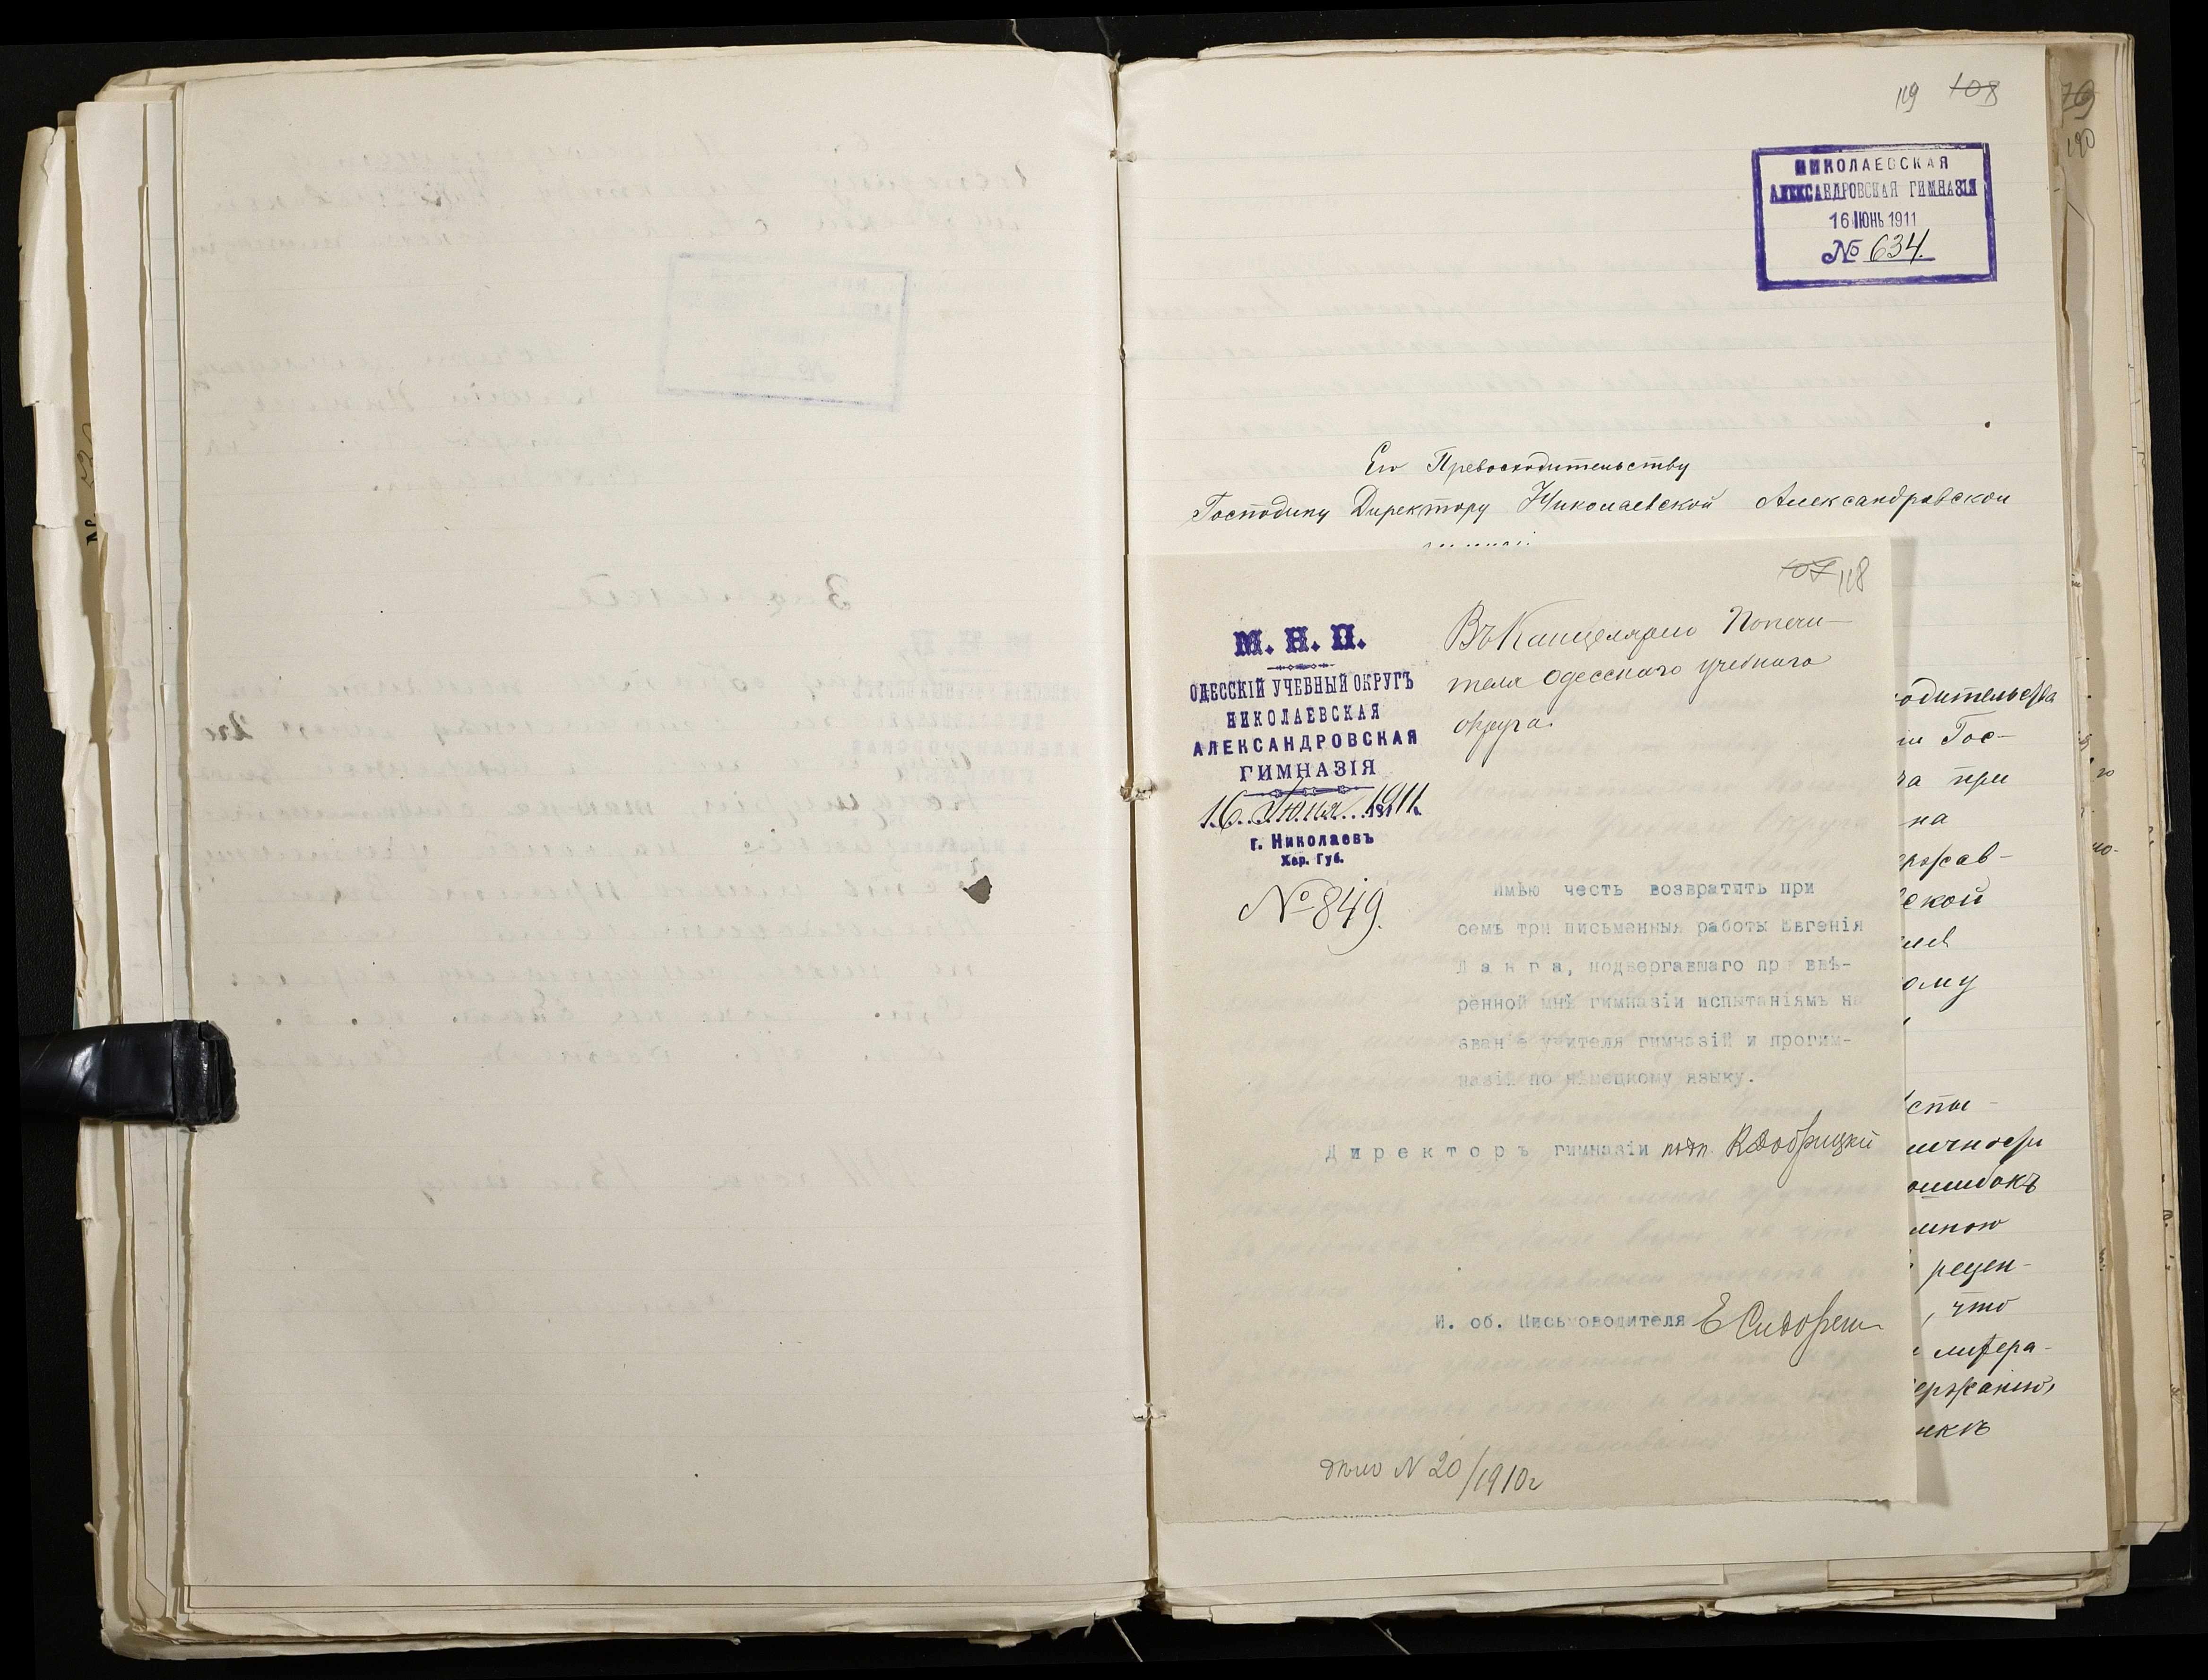 119 108
НИКОЛАЕВСКАЯ
АЛЕКСАНДРОВСКАЯ ГИМНАЗІЯ
16 ІЮНЬ 1911
№ 634.
Его Превосходительству
Господину Директору Николаевской Александровской
107 118
М. Н. П.
ОДЕССКІЙ УЧЕБНЫЙ ОКРУГЪ
НИКОЛАЕВСКАЯ
АЛЕКСАНДРОВСКАЯ
ГИМНАЗІЯ
16 Іюня 1911 г.
г. Николаевъ
Хер. Губ.
№ 849.
Въ Канцелярію Попечи-
теля Одесскаго учебнаго
округа.
Имѣю честь возвратить при
семъ три письменныя работы Евгенія
Ланга, подвергавшаго при ввѣ-
ренной мнѣ гимназіи испытаніямъ на
званіе учителя гимназій и прогим-
назій по нѣмецкому языку.
Директоръ гимназіи подп.
И. об. Письмоводителя
дѣло N 20/1910 г
одительства
Гос-
при
на
ержав-
ской
ому
спы-
ошибокъ
мною
рецен-
, что
литера-
ержанію,
190